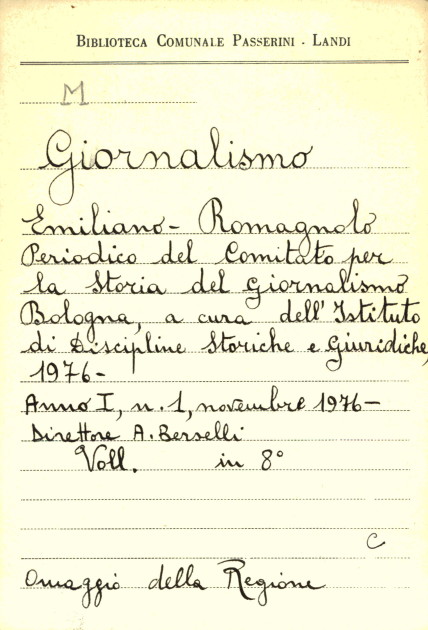 BIBLIOTECA COMUNALE PASSERINI - LANDI
M
Giornalismo
Emiliano - Romagnolo
Periodico del Comitato per
la Storia del Giornalismo
Bologna, a cura dell'Istituto
di Discipline Storiche e Giuridiche,
1976-
Anno I, n. 1, novembre 1976-
Direttore A. Berselli
Voll. in 8°
C
Omaggio della Regione